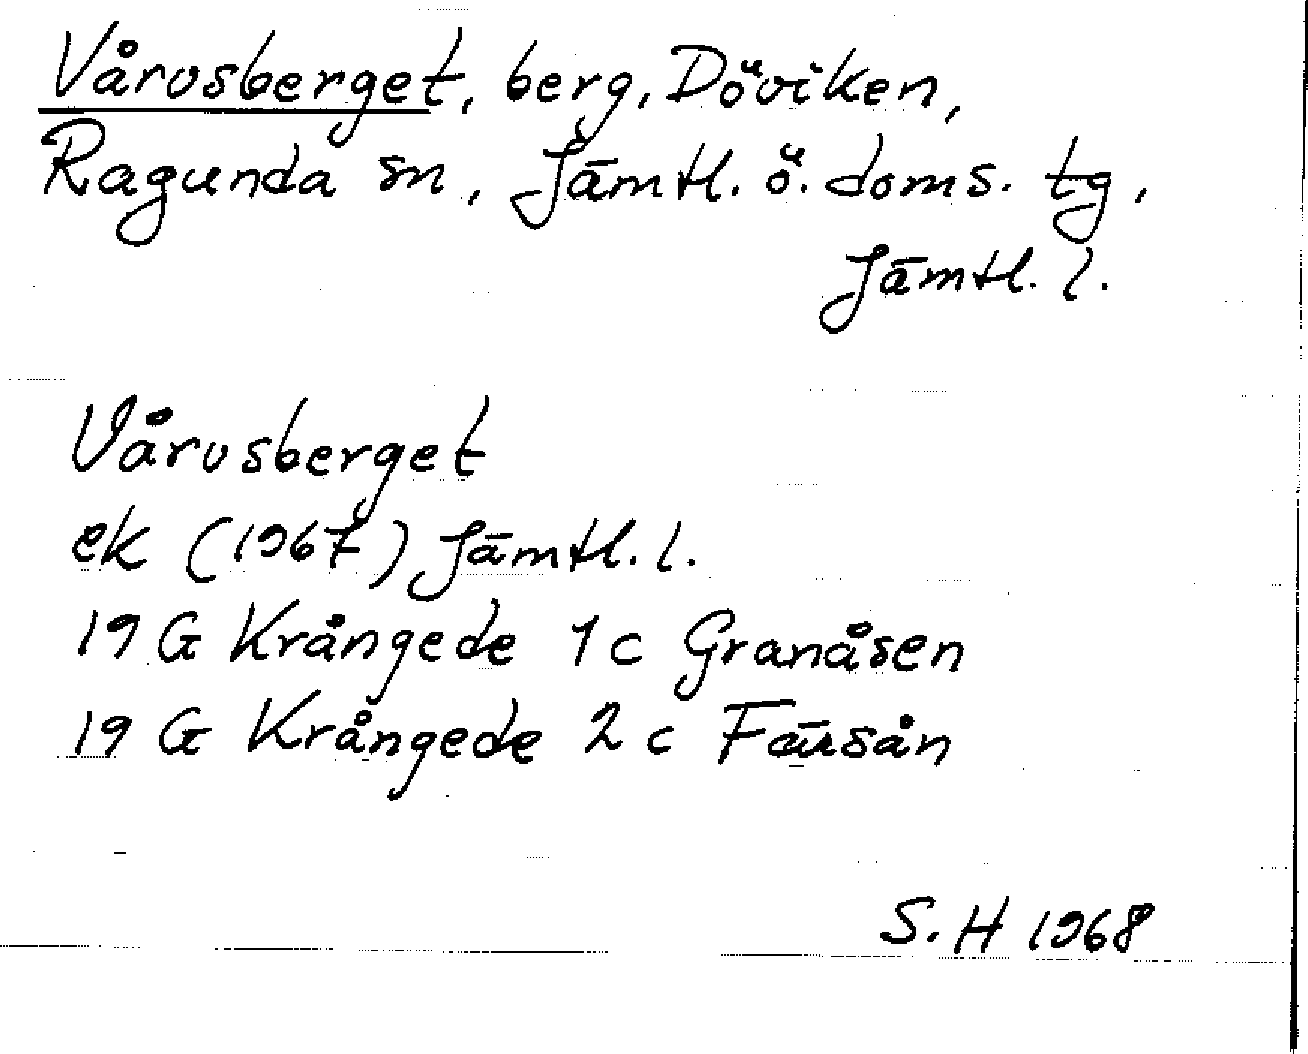 Vårusberget, berg, Döviken,
Ragunda sn, Jämtl. ö. doms. tg,
Jämtl. l.
Vårusberget
ek (1967) Jämtl. l.
19 G Krångede 1 c Granåsen
19 G Krångede 2 c Färsån
S. H 1968